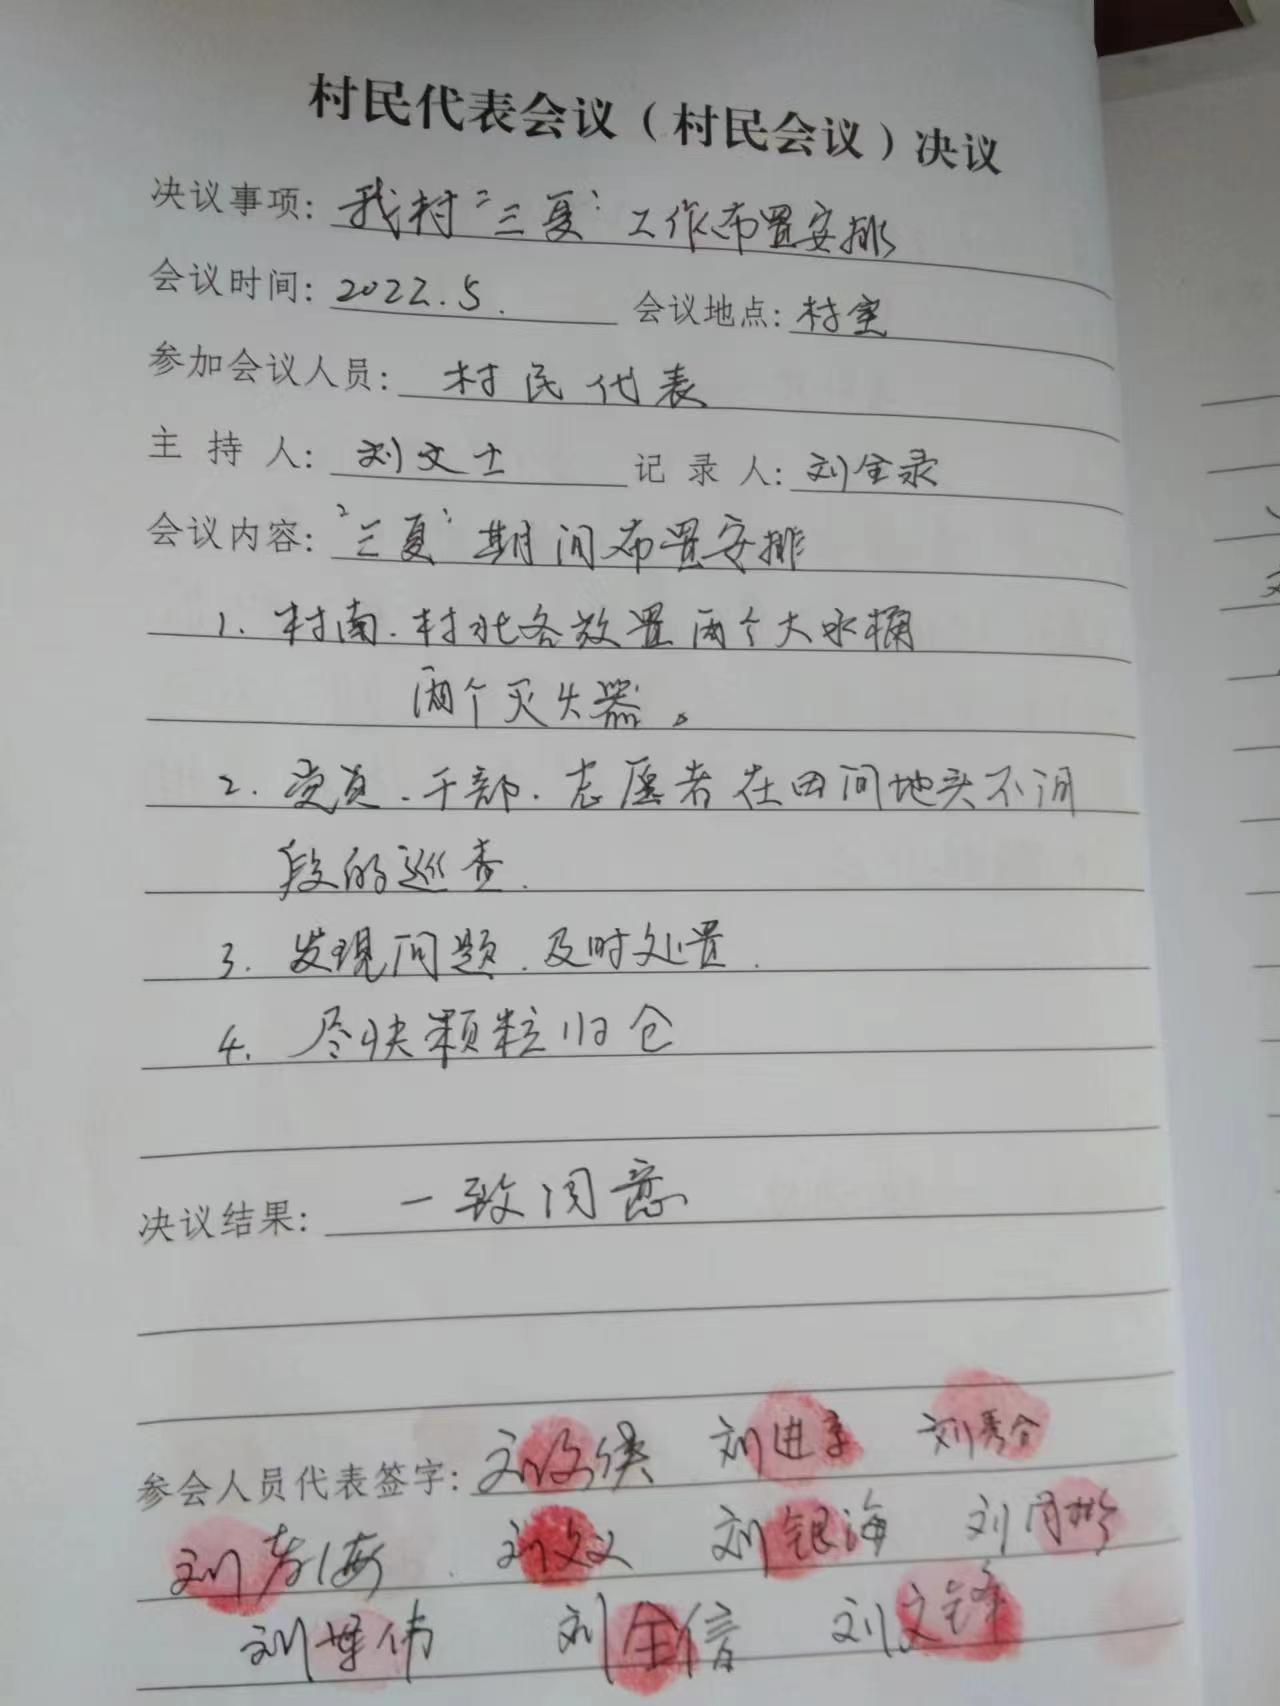 村民代表会议（村民会议）决议
决议事项：我村“三夏”工作布置安排
会议时间：2022.5. 会议地点：村室
参加会议人员：村民代表
主持人：刘文士 记录人：刘全录
会议内容：“三夏”期间布置安排
1. 村南.村北各放置两个大水桶
两个灭火器。
2. 党员.干部.志愿者在田间地头不间
段的巡查.
3. 发现问题.及时处置.
4. 尽快颗粒归仓
决议结果：一致同意
参会人员代表签字：刘 刘进 刘秀
刘 海 刘文义 刘银海 刘
刘 伟 刘全信 刘文锋